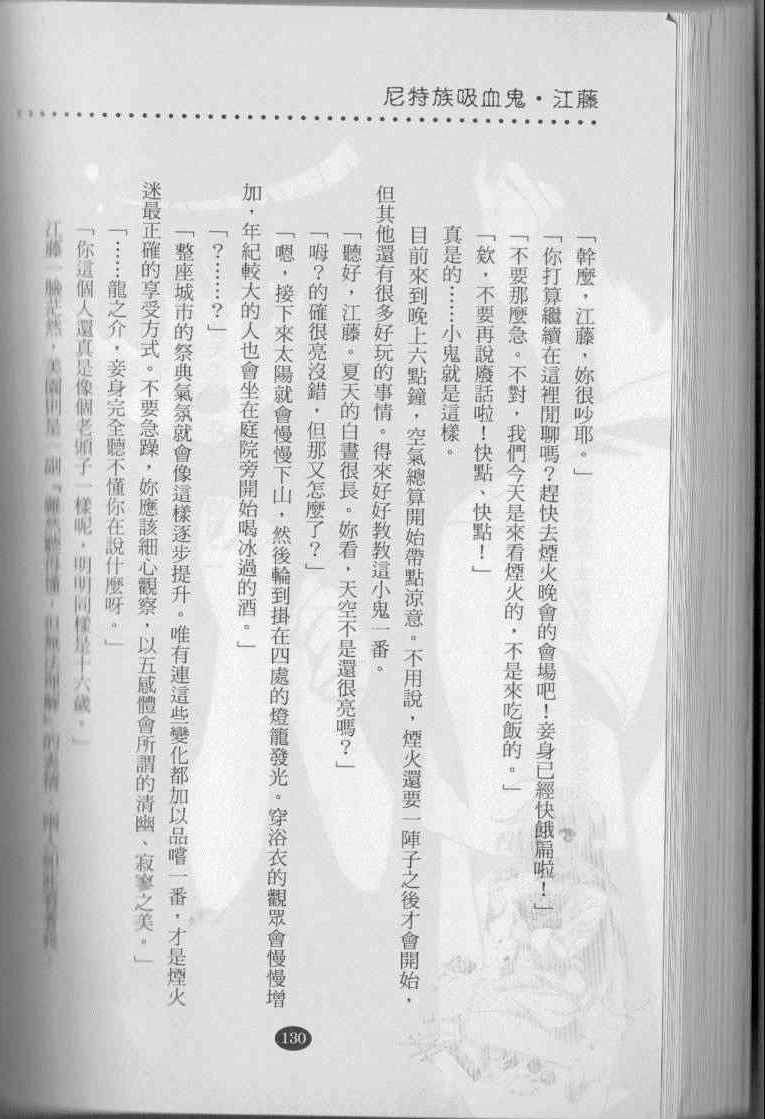 尼特族吸血鬼・江藤
「幹麼，江藤，妳很吵耶。」
「你打算繼續在這裡閒聊嗎？趕快去煙火晚會的會場吧！妾身已經快餓扁啦！」
「不要那麼急。不對，我們今天是來看煙火的，不是來吃飯的。」
「欸，不要再說廢話啦！快點、快點！」
真是的……小鬼就是這樣。
目前來到晚上六點鐘，空氣總算開始帶點涼意。不用說，煙火還要一陣子之後才會開始，
但其他還有很多好玩的事情。得來好好教教這小鬼一番。
「聽好，江藤。夏天的白晝很長。妳看，天空不是還很亮嗎？」
「呣？的確很亮沒錯，但那又怎麼了？」
「嗯，接下來太陽就會慢慢下山，然後輪到掛在四處的燈籠發光。穿浴衣的觀眾會慢慢增
加，年紀較大的人也會坐在庭院旁開始喝冰過的酒。」
「？……？」
「整座城市的祭典氣氛就會像這樣逐步提升。唯有連這些變化都加以品嚐一番，才是煙火
迷最正確的享受方式。不要急躁，妳應該細心觀察，以五感體會所謂的清幽、寂寥之美。」
「……龍之介，妾身完全聽不懂你在說什麼呀。」
「你這個人還真是像個老頭子一樣呢，明明同樣是十六歲。」
江藤一臉茫然，美園則是一副『雖然聽得懂，但無法理解』的表情，兩人
130